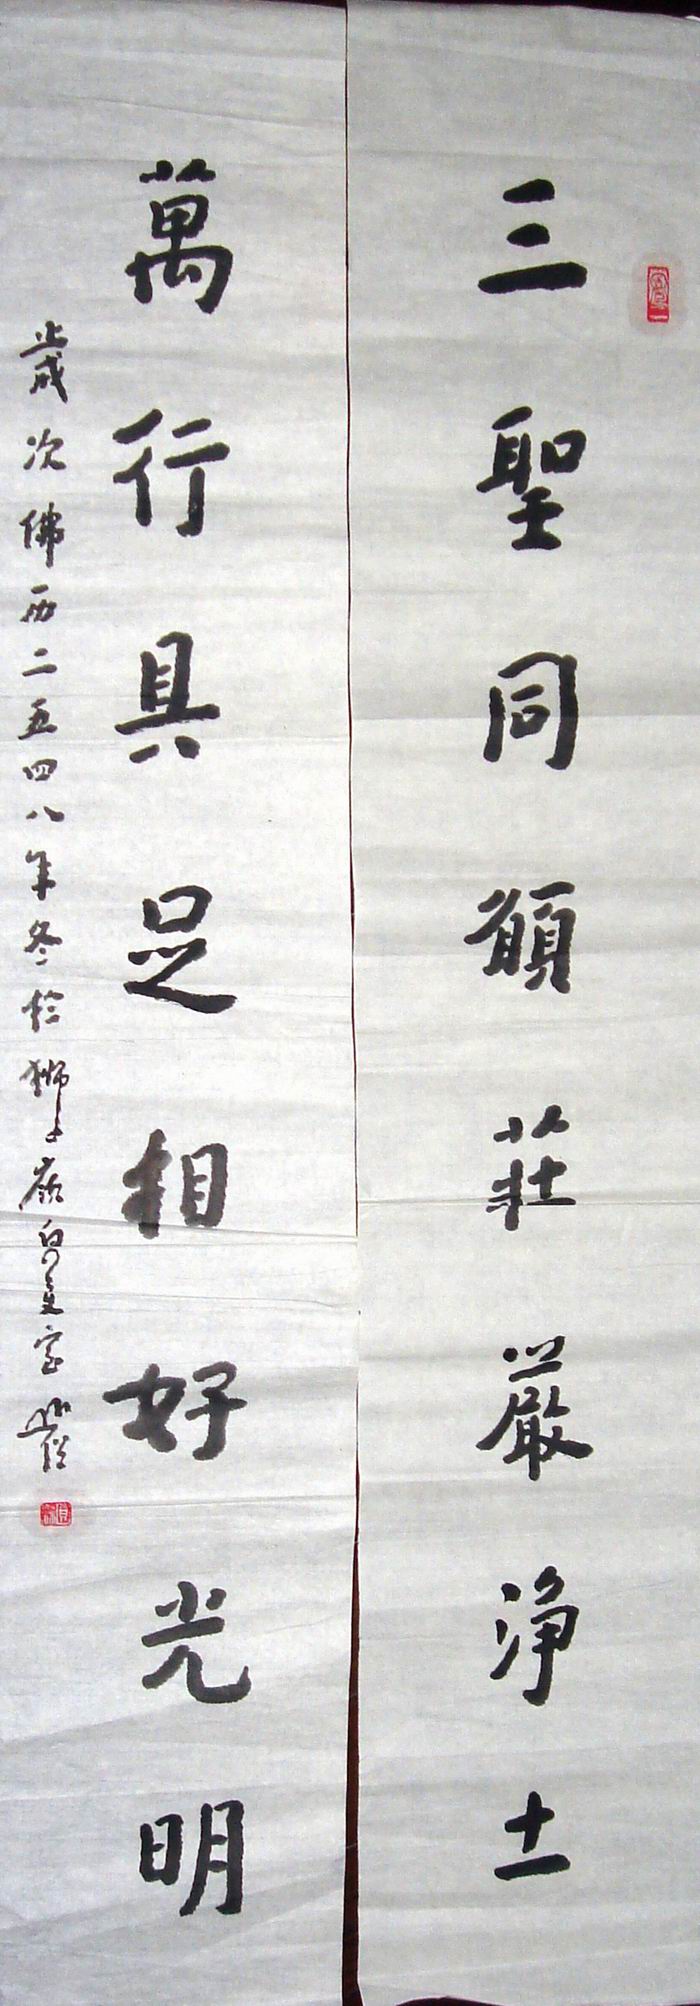 三聖同願莊嚴淨土
萬行具足相好光明
歲次佛曆二五四八年冬於獅子